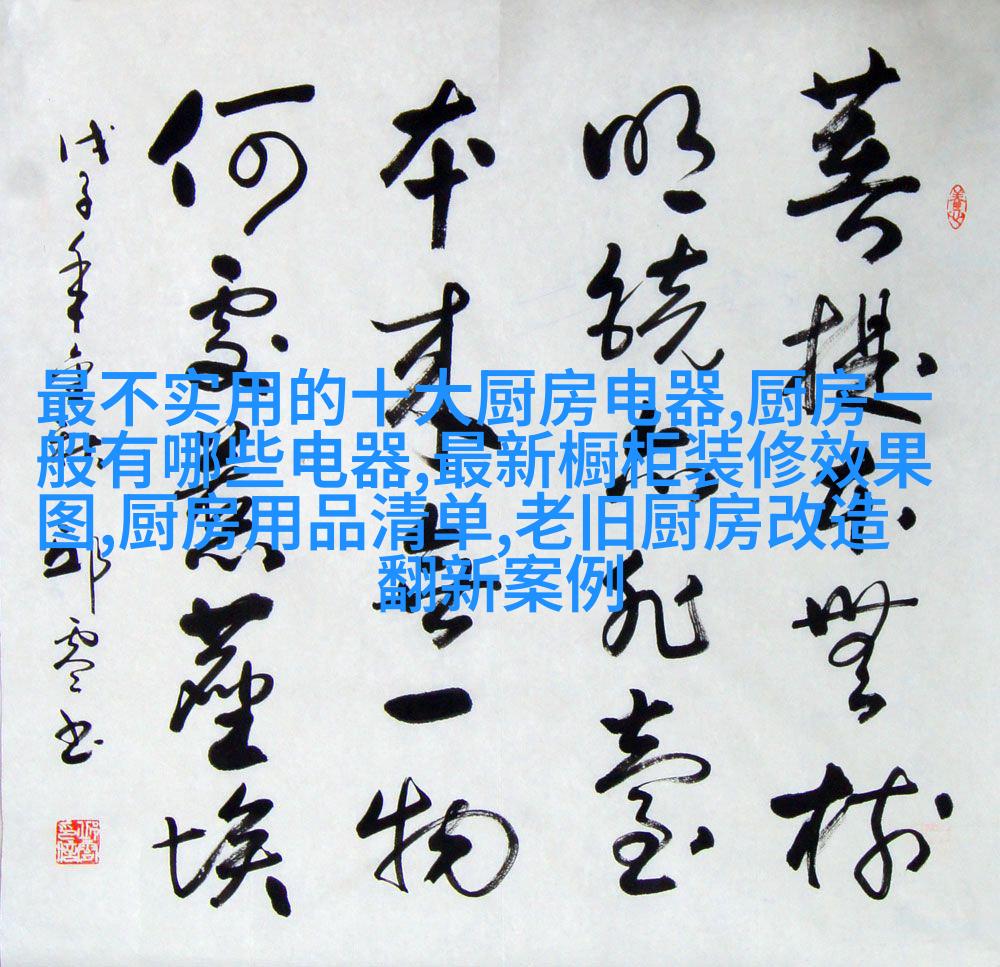 菩提本無樹
明鏡亦非臺
本来無一物
何處惹塵埃
戊子年 書
最不实用的十大厨房电器,厨房一
般有哪些电器,最新橱柜装修效果
图,厨房用品清单,老旧厨房改造
翻新案例